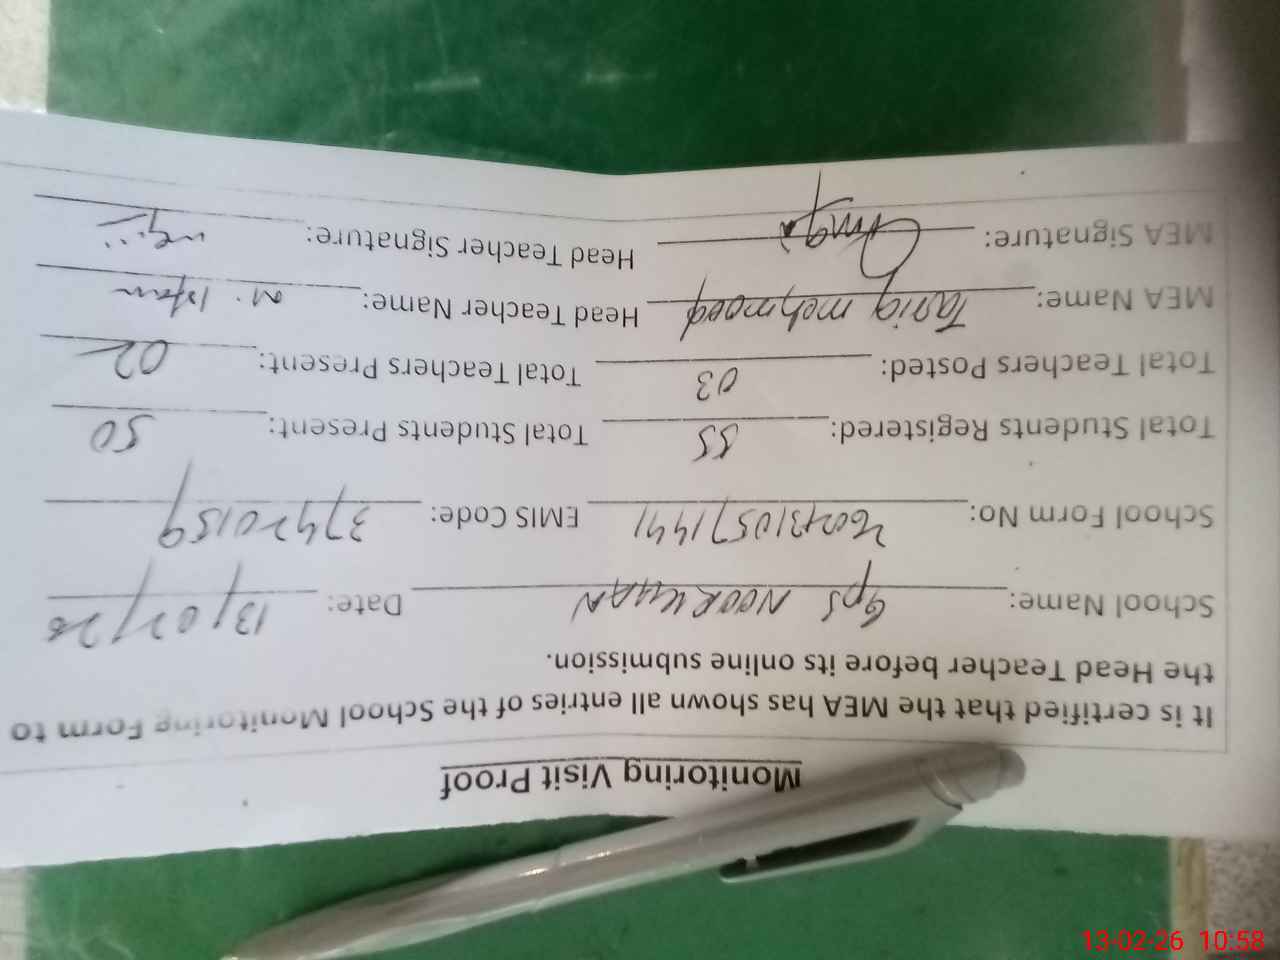 Monitoring Visit Proof
It is certified that the MEA has shown all entries of the School Monitoring Form to
the Head Teacher before its online submission.
School Name: GPS NOOR KHAN Date: 13/02/26
School Form No: EMIS Code: 37420159
Total Students Registered: 55 Total Students Present: 50
Total Teachers Posted: 03 Total Teachers Present: 02
MEA Name: Tariq mehmood Head Teacher Name: M. Irfan
MEA Signature: Head Teacher Signature:
13-02-26 10:58